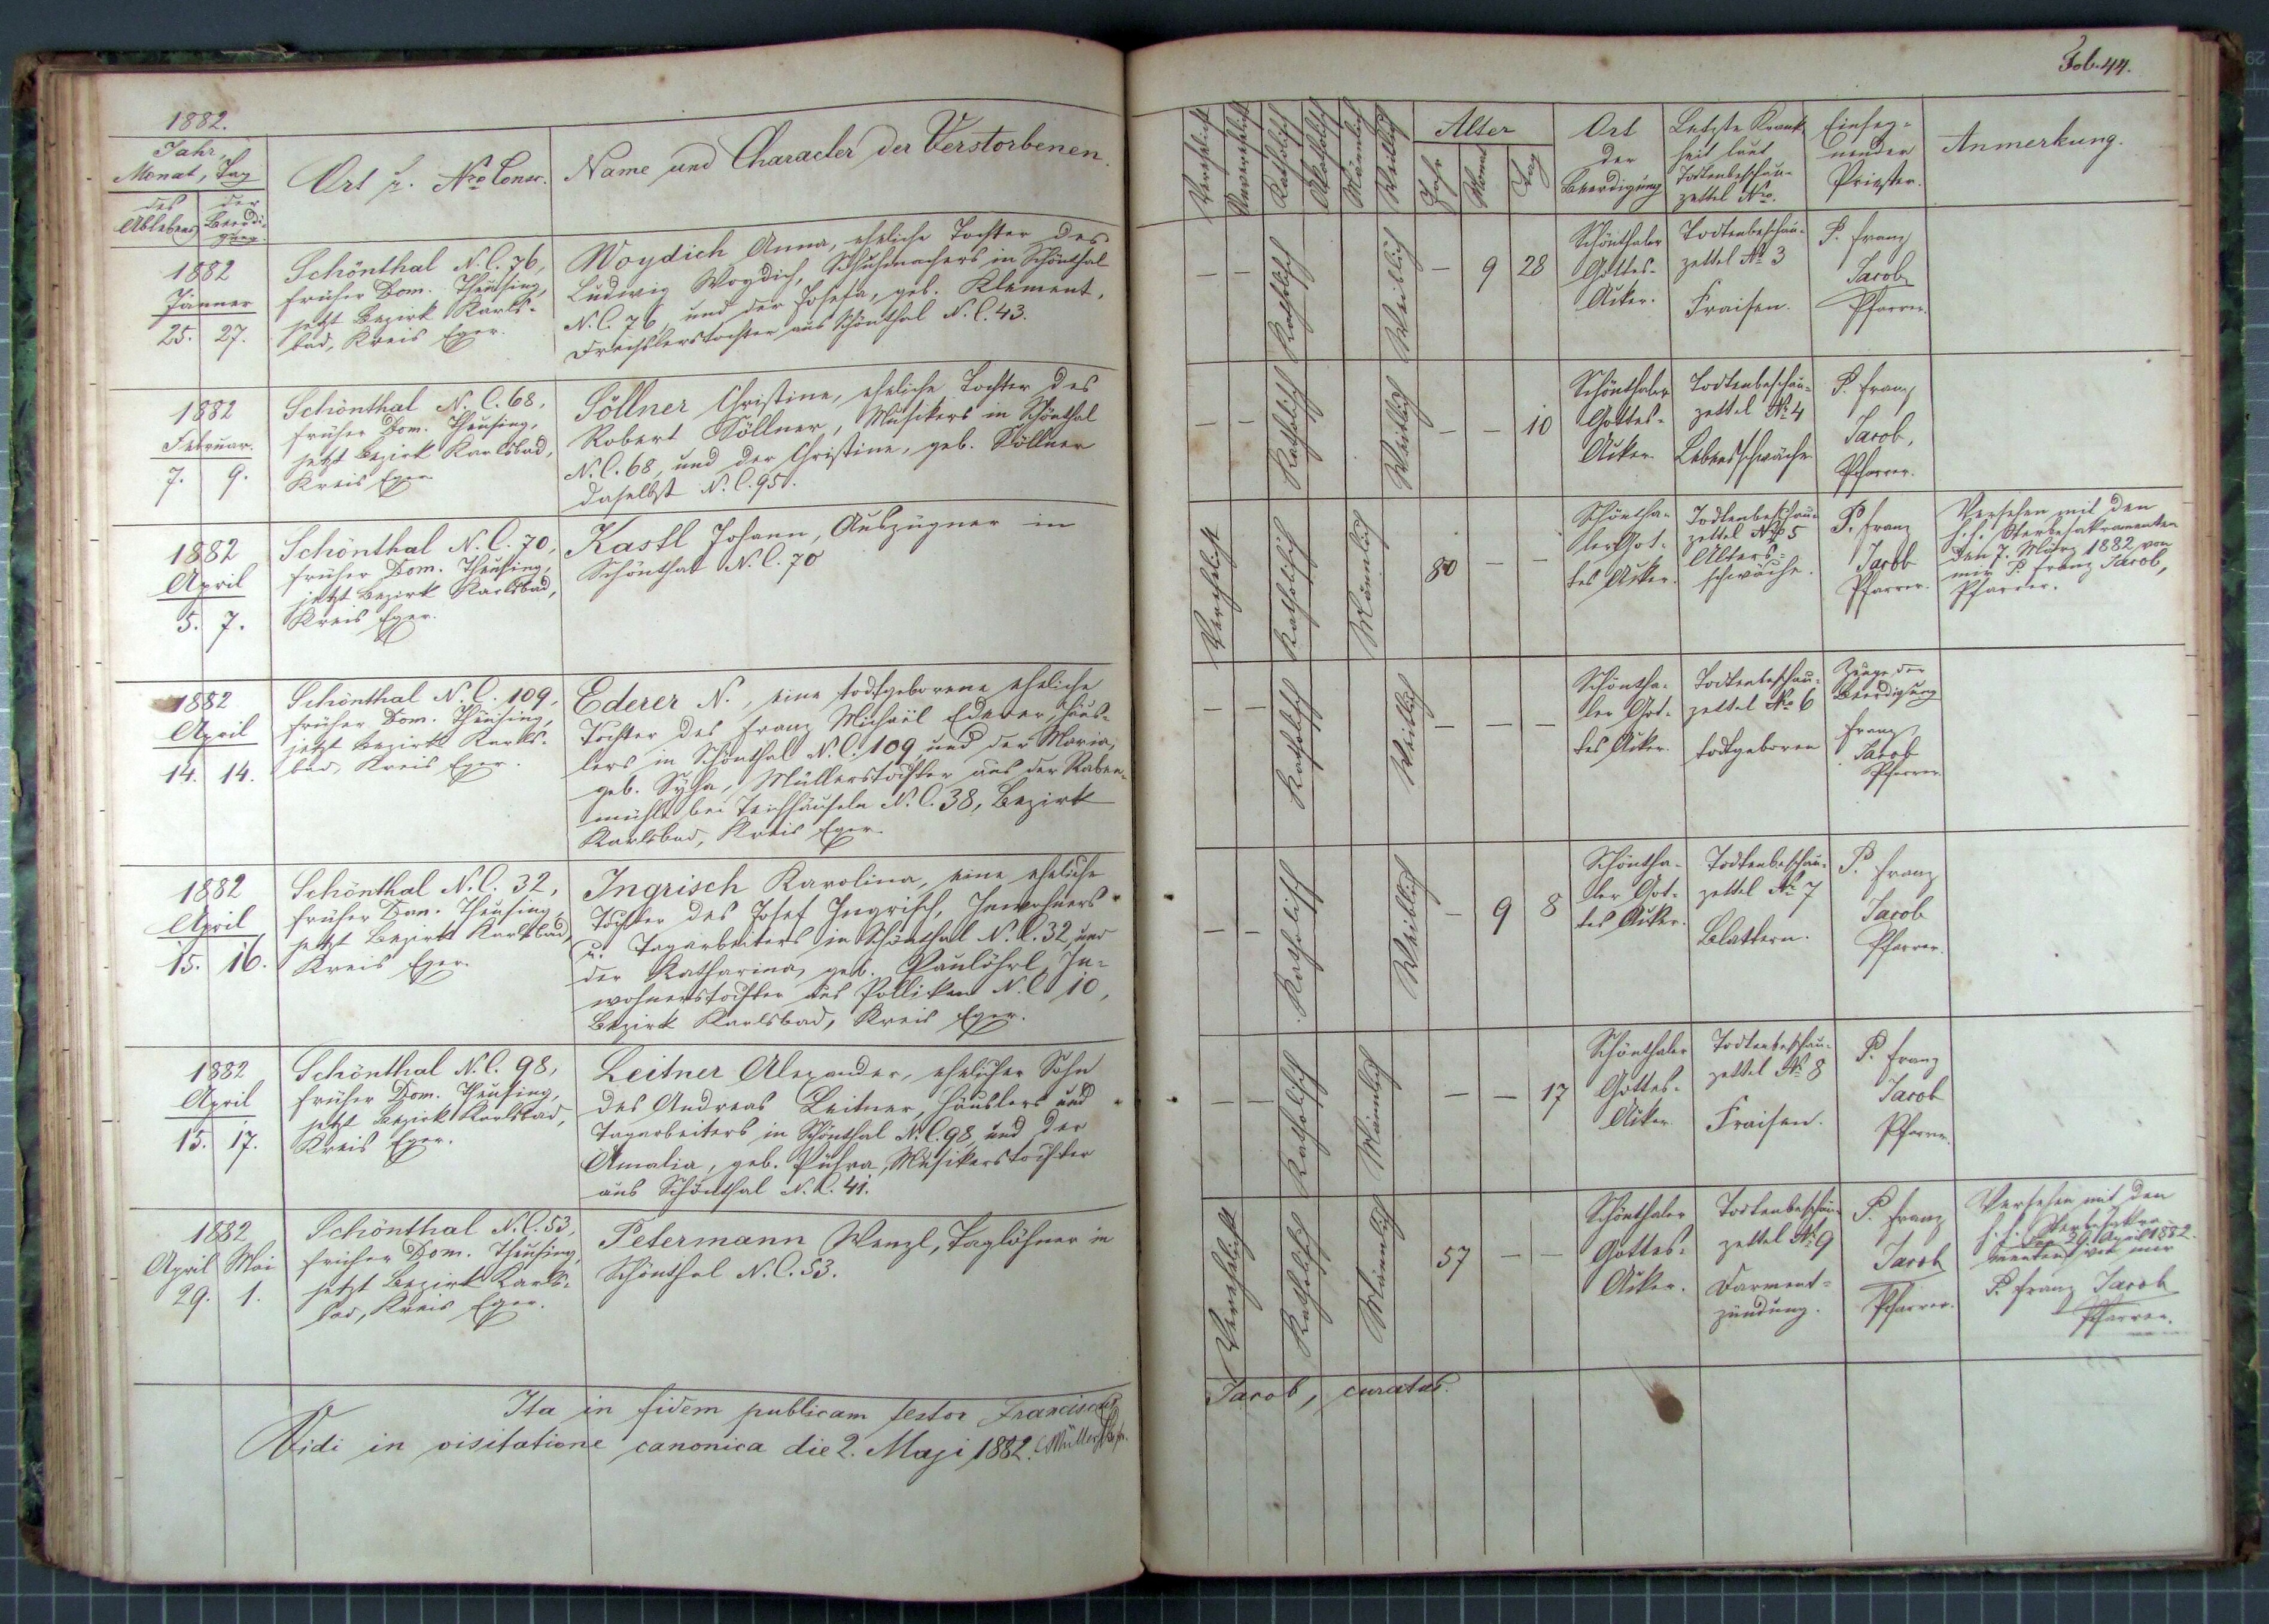 1882.
Fol. 44.
Jahr,
Monat, Tag
des
Ablebens
der
Beerdi-
gung.
Ort u. Nro Consc.
Name und Character der Verstorbenen.
Verehelicht
Unverehelicht
Katholisch
Akatholisch
Männlich
Weiblich
Alter
Jahr
Monat
Tag
Ort
der
Beerdigung
Letzte Krank-
heit laut
Todtenbeschau-
zettel Nro.
Einseg-
nender
Priester.
Anmerkung.
1882
Jänner
25. 27.
Schönthal N. C. 76,
früher Dom. Theusing,
jetzt Bezirk Karls-
bad, Kreis Eger.
Woydich Anna, eheliche Tochter des
Ludwig Woydich, Schuhmachers in Schönthal
N. C. 76, und der Josefa, geb. Klement,
Drechslerstochter aus Schönthal N. C. 43.
— — Katholisch Weiblich — 9 28
Schönthaler
Gottes-
Acker.
Todtenbeschau-
zettel No 3
Fraisen.
P. Franz
Jacob
Pfarrer.
1882
Februar.
7. 9.
Schönthal N. C. 68,
früher Dom. Theusing,
jetzt Bezirk Karlsbad,
Kreis Eger.
Söllner Christine, eheliche Tochter des
Robert Söllner, Musikers in Schönthal
N. C. 68, und der Christine, geb. Söllner
daselbst N. C. 95.
— — Katholisch Weiblich — — 10
Schönthaler
Gottes-
Acker.
Todtenbeschau-
zettel No 4
Lebensschwäche
P. Franz
Jacob,
Pfarrer.
1882
April
5. 7.
Schönthal N. C. 70,
früher Dom. Theusing,
jetzt Bezirk Karlsbad,
Kreis Eger.
Kastl Johann, Auszügner in
Schönthal N. C. 70
Verehelicht Katholisch Männlich 80 — —
Schöntha-
ler Got-
tes Acker.
Todtenbeschau-
zettel No 5
Alters-
schwäche.
P. Franz
Jacob
Pfarrer.
Versehen mit den
h. h. Sterbesakramenten
den 7. März 1882 von
mir P. Franz Jacob,
Pfarrer.
1882
April
14. 14.
Schönthal N. C. 109,
früher Dom. Theusing,
jetzt Bezirk Karls-
bad, Kreis Eger.
Ederer N., eine todtgeborene eheliche
Tochter des Franz Michaël Ederer, Häus-
lers in Schönthal N. C. 109 und der Maria,
geb. Syha, Müllerstochter aus der Raben-
mühle bei Teichhäuseln N. C. 38, Bezirk
Karlsbad, Kreis Eger.
— — Katholisch Weiblich — — —
Schöntha-
ler Got-
tes Acker.
Todtenbeschau-
zettel No 6
todtgeboren
Zeuge der
Beerdigung
Franz
Jacob
Pfarrer
1882
April
15. 16.
Schönthal N. C. 32,
früher Dom. Theusing,
jetzt Bezirk Karlsbad,
Kreis Eger.
Ingrisch Karolina, eine eheliche
Tochter des Josef Ingrisch, Inwohners
u. Tagarbeiters in Schönthal N. C. 32 und
der Katharina, geb. Paulöhrl, In-
wohnerstochter aus Polliken N. C 10,
Bezirk Karlsbad, Kreis Eger.
— — Katholisch Weiblich — 9 8
Schöntha-
ler Got-
tes Acker.
Todtenbeschau-
zettel No 7
Blattern.
P. Franz
Jacob
Pfarrer.
1882
April
15. 17.
Schönthal N. C. 98,
früher Dom. Theusing,
jetzt Bezirk Karlsbad,
Kreis Eger.
Leitner Alexander, ehelicher Sohn
des Andreas Leitner, Häuslers und
Tagarbeiters in Schönthal N. C. 98 und der
Amalia, geb. Püchra, Musikerstochter
aus Schönthal N. C. 41.
— — Katholisch Männlich — — 17
Schönthaler
Gottes-
Acker.
Todtenbeschau-
zettel No 8
Fraisen.
P. Franz
Jacob
Pfarrer.
1882
April Mai
29. 1.
Schönthal N. C. 53,
früher Dom. Theusing,
jetzt Bezirk Karls-
bad, Kreis Eger.
Petermann Wenzl, Taglöhner in
Schönthal N. C. 53.
Verehelicht Katholisch Männlich 57 — —
Schönthaler
Gottes-
Acker.
Todtenbeschau-
zettel No 9
Darment-
zündung.
P. Franz
Jacob
Pfarrer.
Versehen mit den
h. h. Sterbesakra-
den 29. April 1882.
menten von mir
P. Franz Jacob
Pfarrer.
Ita in fidem publicam testor Franciscus
Jacob, curatus.
Vidi in visitatione canonica die 2. Maji 1882. Müller